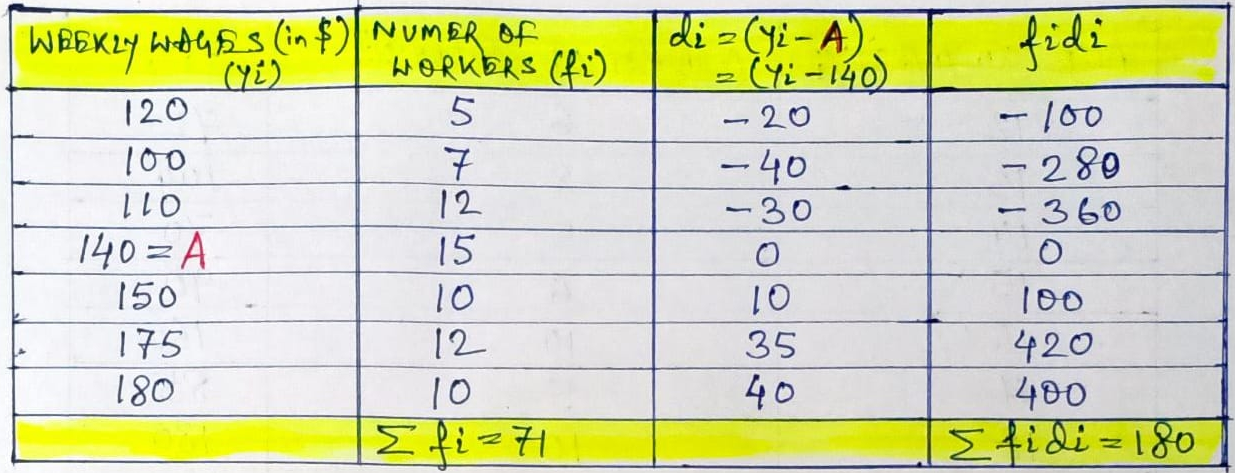 WEEKLY WAGES (in $) (yi) NUMER OF WORKERS (fi) di = (yi - A) = (yi - 140) fidi
120 5 - 20 - 100
100 7 - 40 - 280
110 12 - 30 - 360
140 = A 15 0 0
150 10 10 100
175 12 35 420
180 10 40 400
Σ fi = 71 Σ fidi = 180